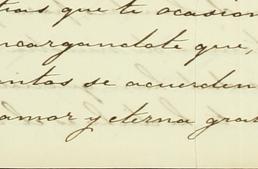 que te ocasion
ncargandote que,
se acuerden
amor y eterna grat